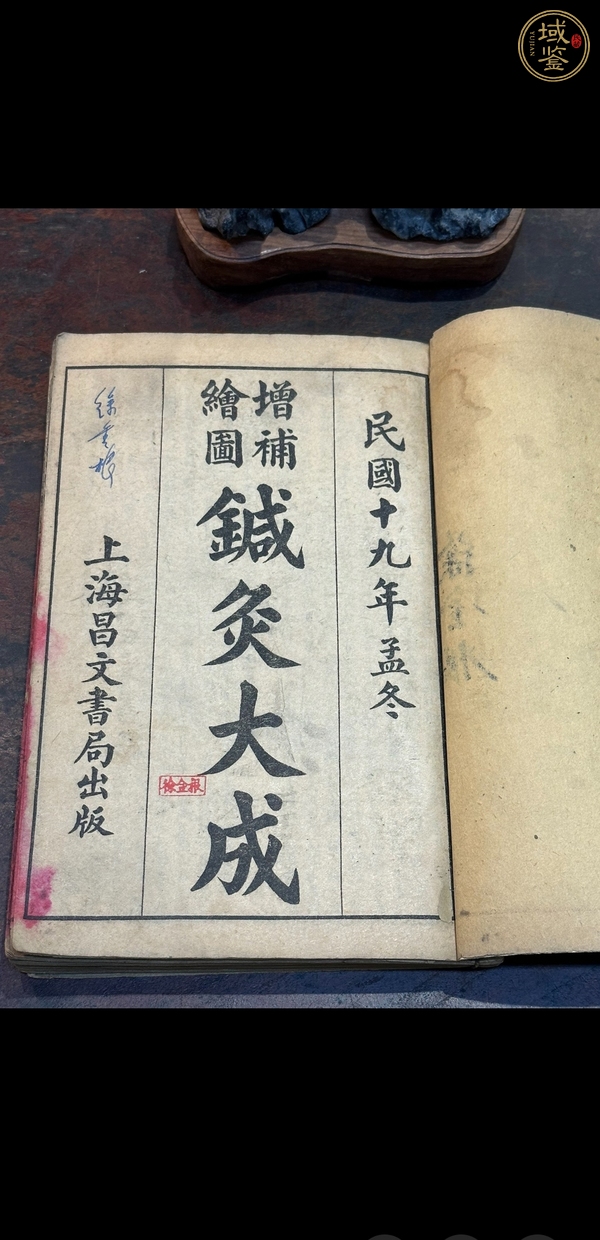 域鉴
YUJIAN
民國十九年孟冬
增補
繪圖
鍼灸大成
上海昌文書局出版
徐金根
徐金根